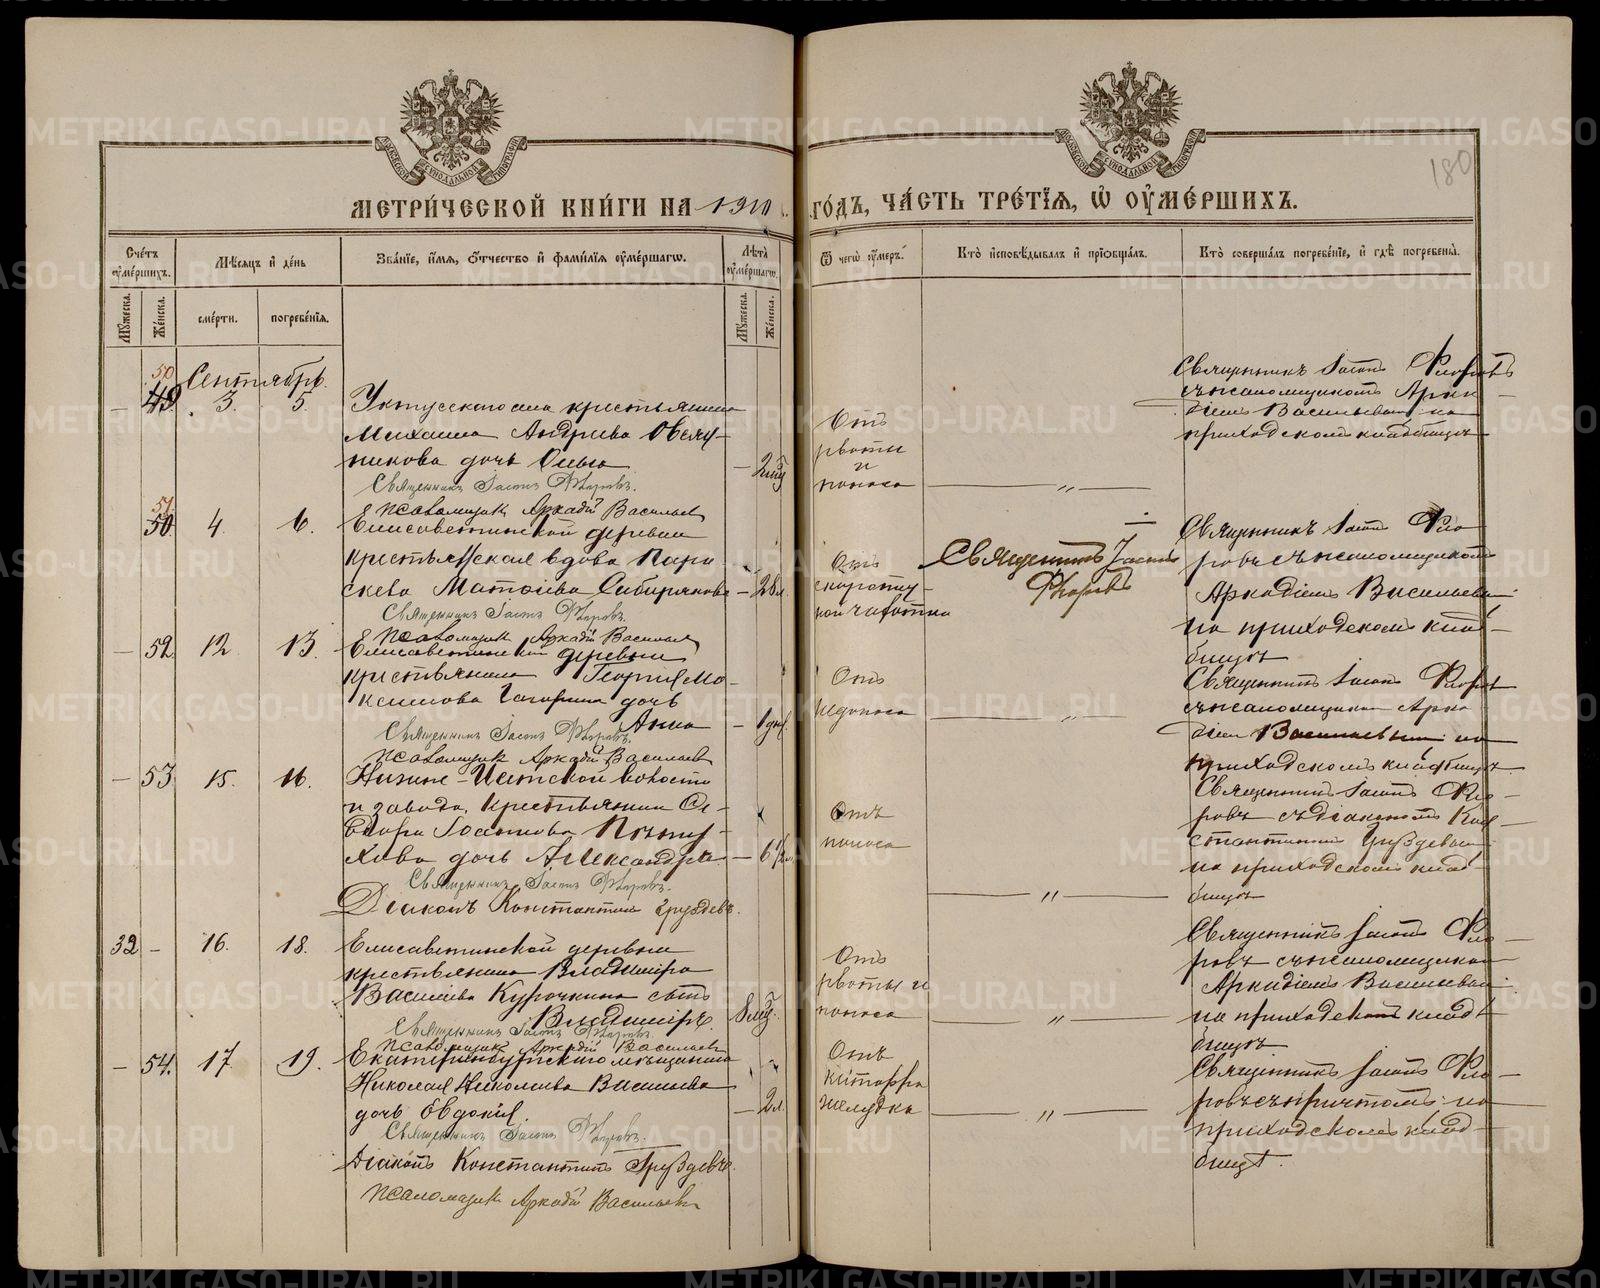 180
МЕТРИ́ЧЕСКОЙ КНИ́ГИ НА 1910
ГО́ДЪ, ЧА́СТЬ ТРЕ́ТЇѦ, Ѡ҆ ОУ҆МЕ́РШИХЪ.
Счéтъ оу҆мéршихъ.
Мѣсяцъ и҆ день
Зва́нїе, и҆́мя, ѻ҆́тчество и҆ фами́лїя оу҆мéршагѡ.
Лѣта̀ оу҆мéршагѡ.
Ѿ чегѡ̀ оу҆́меръ.
Кто̀ и҆сповѣ́дывалъ и҆ прїѡбща́лъ.
Кто̀ соверша́лъ погребéнїе, и҆ гдѣ̀ погребены̀.
Мꙋ́жеска.
Же́нска.
смéрти.
погребéнїя.
Мꙋ́жеска.
Же́нска.
Сентябрь.
50
49 3. 5.
Уктусскаго села крестьянина
Михаила Андреева Овсян-
никова дочь Ольга
Священникъ Іасонъ Флоровъ.
Псаломщикъ Аркадій Васильевъ
Отъ
рвоты
и
поноса
Священникъ Іасонъ Флоровъ
съ псаломщикомъ Арка-
діемъ Васильевымъ на
приходскомъ кладбищѣ
51
50 4 6.
Елисаветинской деревни
крестьянская вдова Пара-
скева Матѳіева Сибирякова
28 л.
Священникъ Іасонъ Флоровъ.
Псаломщикъ Аркадій Васильевъ
Отъ
скоротеч-
ной чахотки
Священникъ Іасонъ
Флоровъ
Священникъ Іасонъ Фло-
ровъ съ псаломщикомъ
Аркадіемъ Васильевымъ
на приходскомъ клад-
бищѣ
52 12 13.
Елисаветинской деревни
крестьянина Георгія Ма-
ксимова дочь
Анна
1 дня
Священникъ Іасонъ Флоровъ.
Псаломщикъ Аркадій Васильевъ
Отъ
недоноса
Священникъ Іасонъ Флоровъ
съ псаломщикомъ Арка-
діемъ Васильевымъ на
приходскомъ кладбищѣ
53 15. 16.
Нижне-Исетской волости
и завода, крестьянина Ѳе-
одора Іоаннова Пѣту-
хова дочь Александра
Священникъ Іасонъ Флоровъ.
Діаконъ Константинъ Груздевъ.
Отъ
поноса
Священникъ Іасонъ Фло-
ровъ съ діакономъ Кон-
стантиномъ Груздевымъ
на приходскомъ клад-
бищѣ
32 16. 18.
Елисаветинской деревни
крестьянина Владиміра
Васильева Курочкина сынъ
Владиміръ.
8 мѣс.
Священникъ Іасонъ Флоровъ
Псаломщикъ Аркадій Васильевъ
Отъ
рвоты и
поноса
Священникъ Іасонъ Фло-
ровъ съ псаломщикомъ
Аркадіемъ Васильевымъ
на приходскомъ клад-
бищѣ
54. 17 19.
Екатеринбургскаго мѣщанина
Николая Николаева Васильева
дочь Евдокія.
2 л.
Священникъ Іасонъ Флоровъ.
Діаконъ Константинъ Груздевъ.
Псаломщикъ Аркадій Васильевъ
Отъ
катарра
желудка
Священникъ Іасонъ Фло-
ровъ съ причтомъ на
приходскомъ клад-
бищѣ.
METRIKI.GASO-URAL.RU